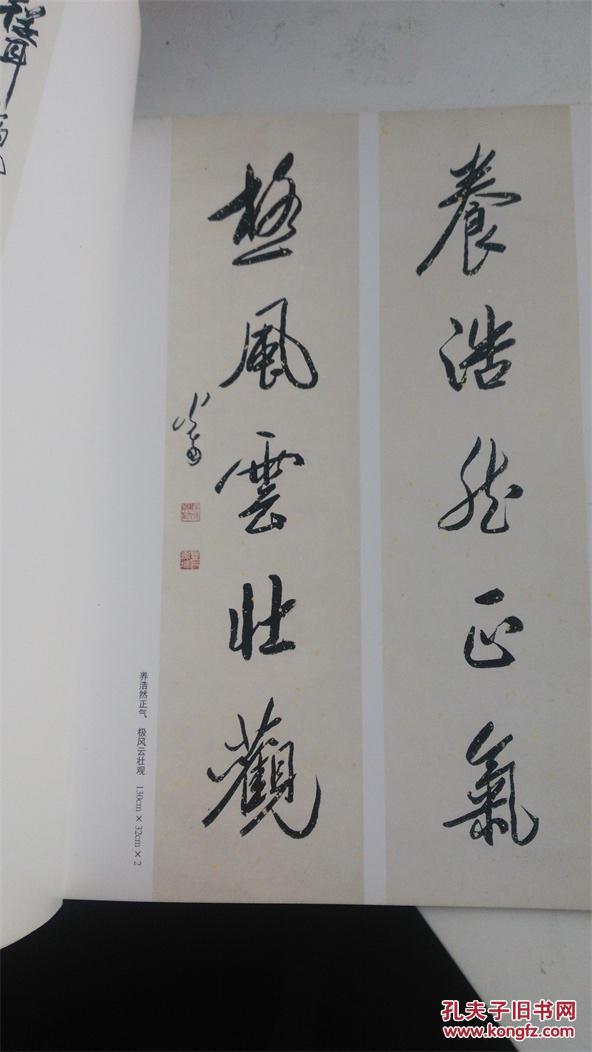 養浩然正氣
極風雲壯觀
心畬
养浩然正气 极风云壮观 130cm×32cm×2
孔夫子旧书网
www.kongfz.com